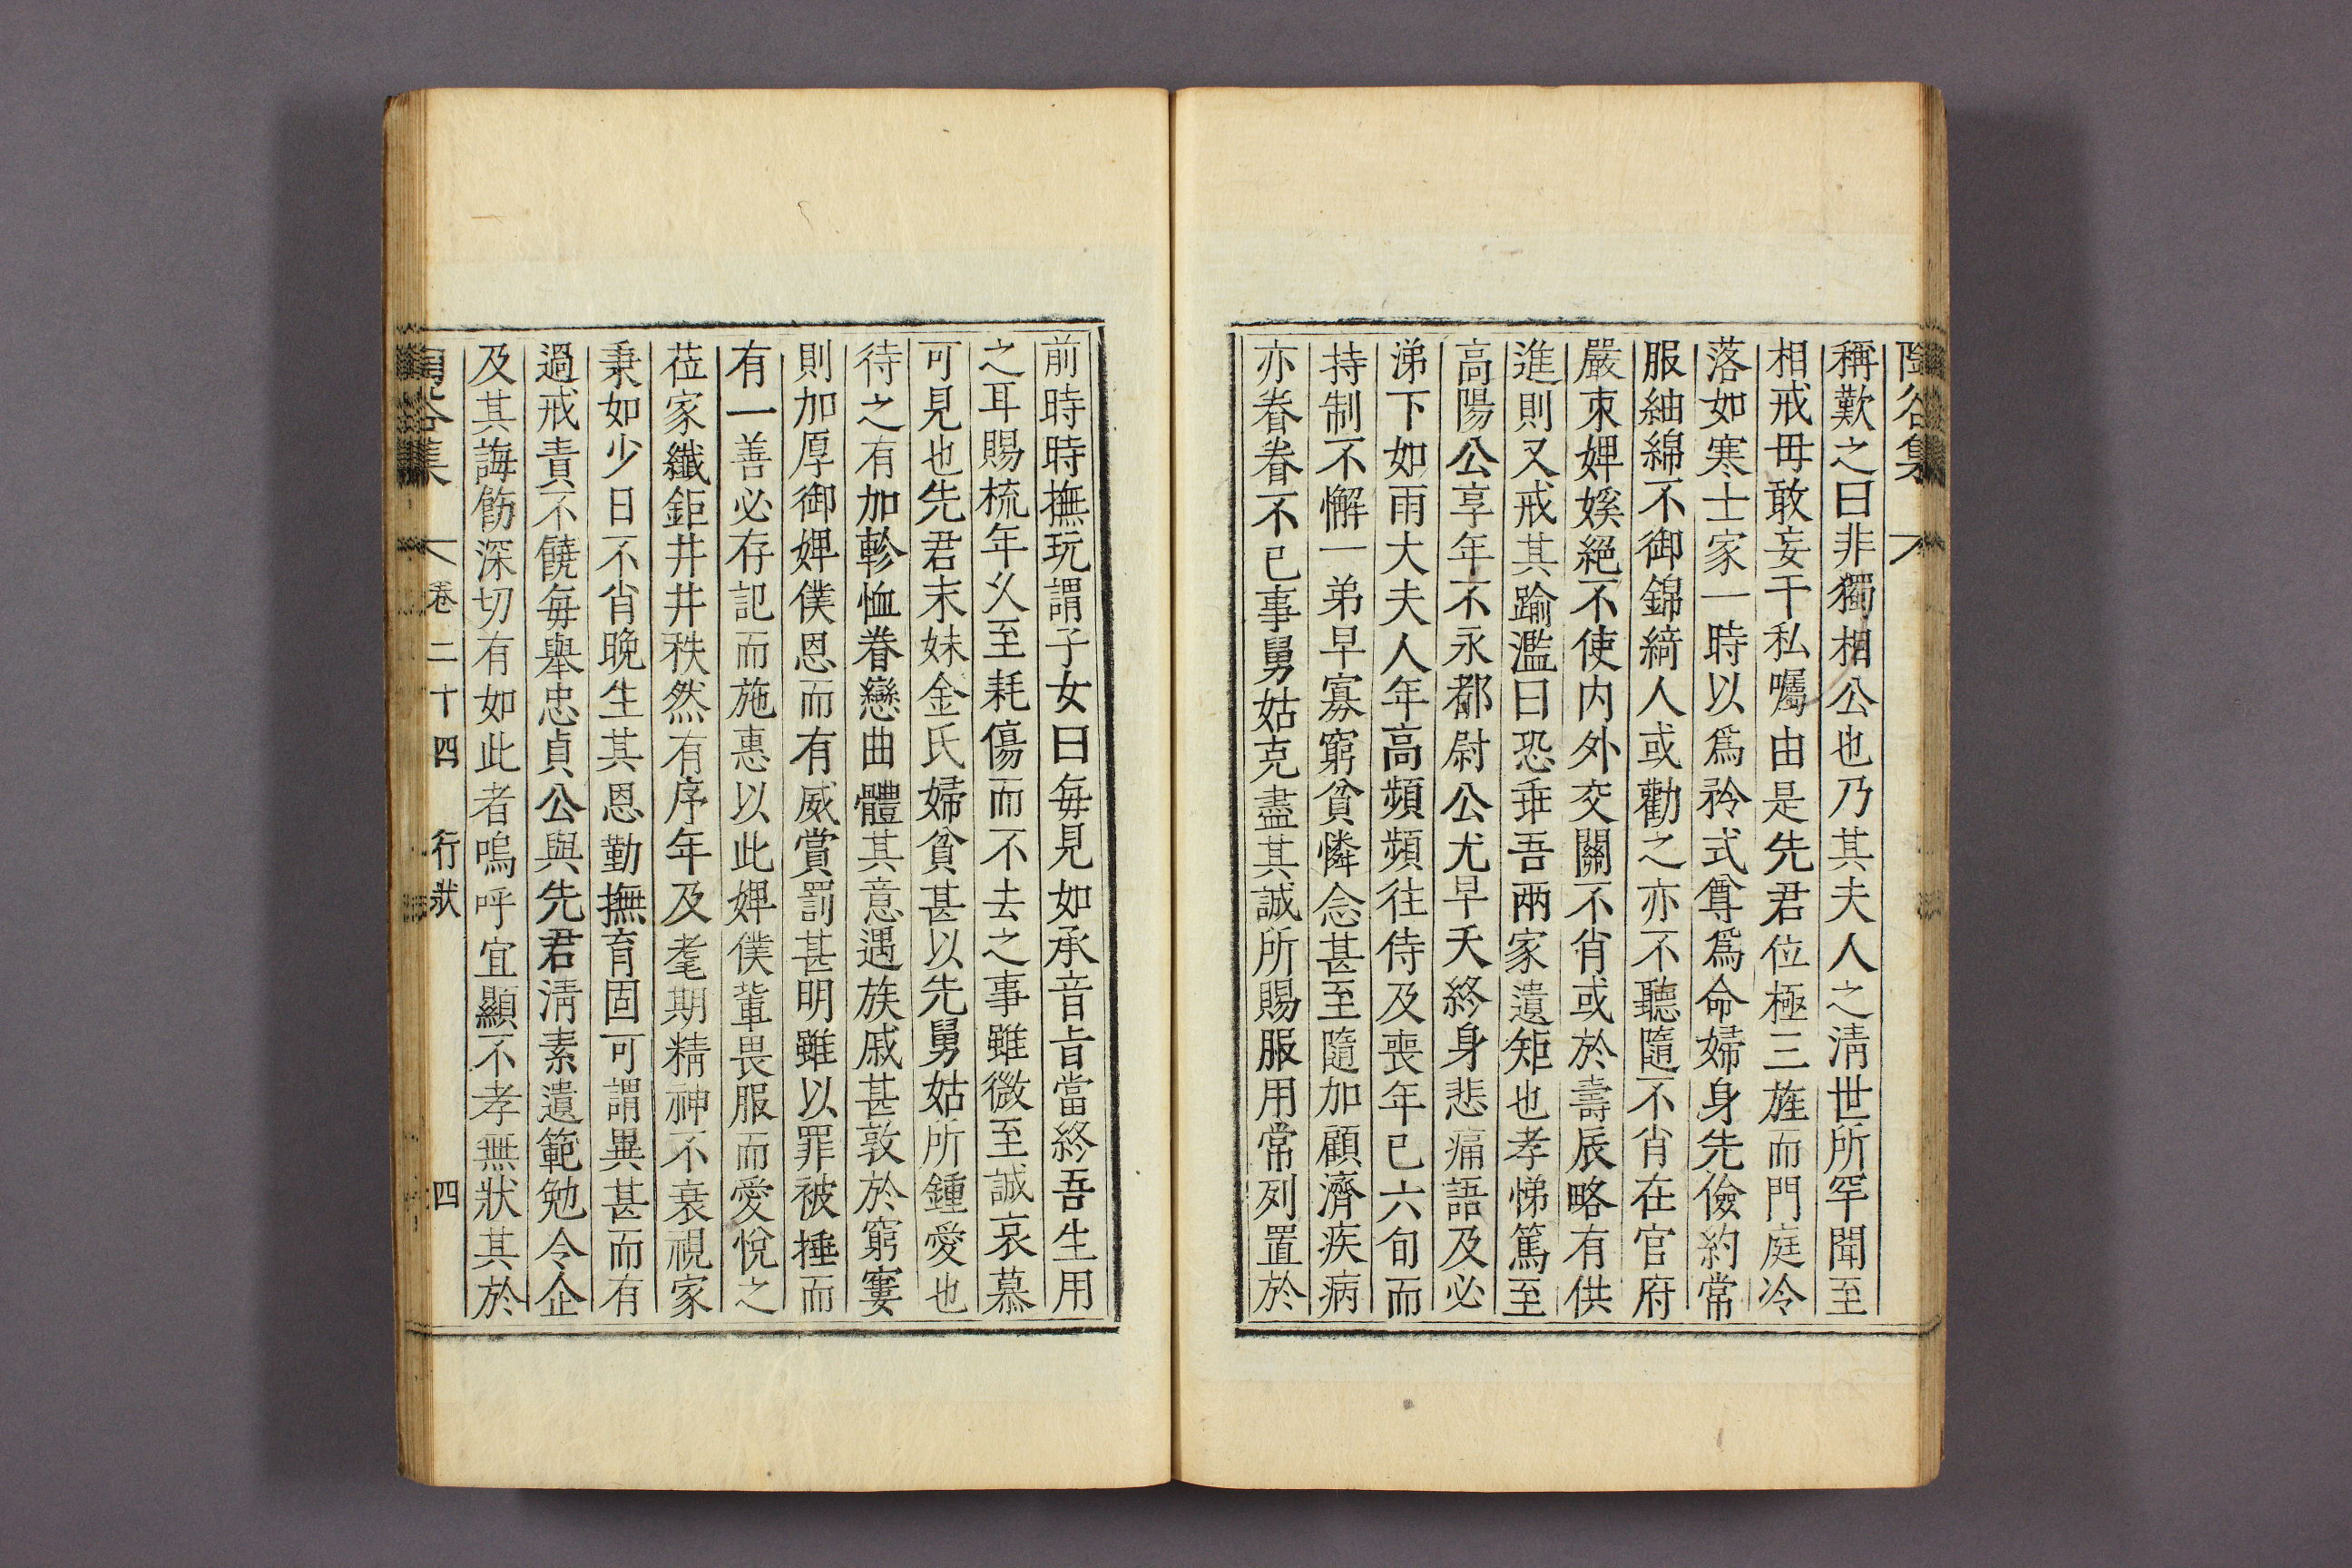 陶谷集
稱歎之曰非獨相公也乃其夫人之淸世所罕聞至
相戒毋敢妄干私囑由是先君位極三旌而門庭冷
落如寒士家一時以爲矜式尊爲命婦身先儉約常
服紬綿不御錦綺人或勸之亦不聽隨不肖在官府
嚴束婢媵絕不使内外交關不肖或於壽辰略有供
進則又戒其踰濫曰恐乖吾兩家遺矩也孝悌篤至
高陽公享年不永都尉公尤早夭終身悲痛語及必
涕下如雨大夫人年高頻頻往侍及喪年已六旬而
持制不懈一弟早寡窮貧憐念甚至隨加顧濟疾病
亦眷眷不已事舅姑克盡其誠所賜服用常列置於
前時時撫玩謂子女曰每見如承音旨當終吾生用
之耳賜梳年久至耗傷而不去之事雖微至誠哀慕
可見也先君末妹金氏婦貧甚以先舅姑所鍾愛也
待之有加軫恤眷戀曲體其意遇族戚甚敦於窮窶
則加厚御婢僕恩而有威賞罰甚明雖以罪被捶而
有一善必存記而施惠以此婢僕軰畏服而愛悅之
莅家纖鉅井井秩然有序年及耄期精神不衰視家
秉如少日不肖晩生其恩勤撫育固可謂異甚而有
過戒責不饒每舉忠貞公與先君淸素遺範勉令企
及其誨飭深切有如此者嗚呼宜顯不孝無狀其於
陶谷集 卷二十四 行狀 四